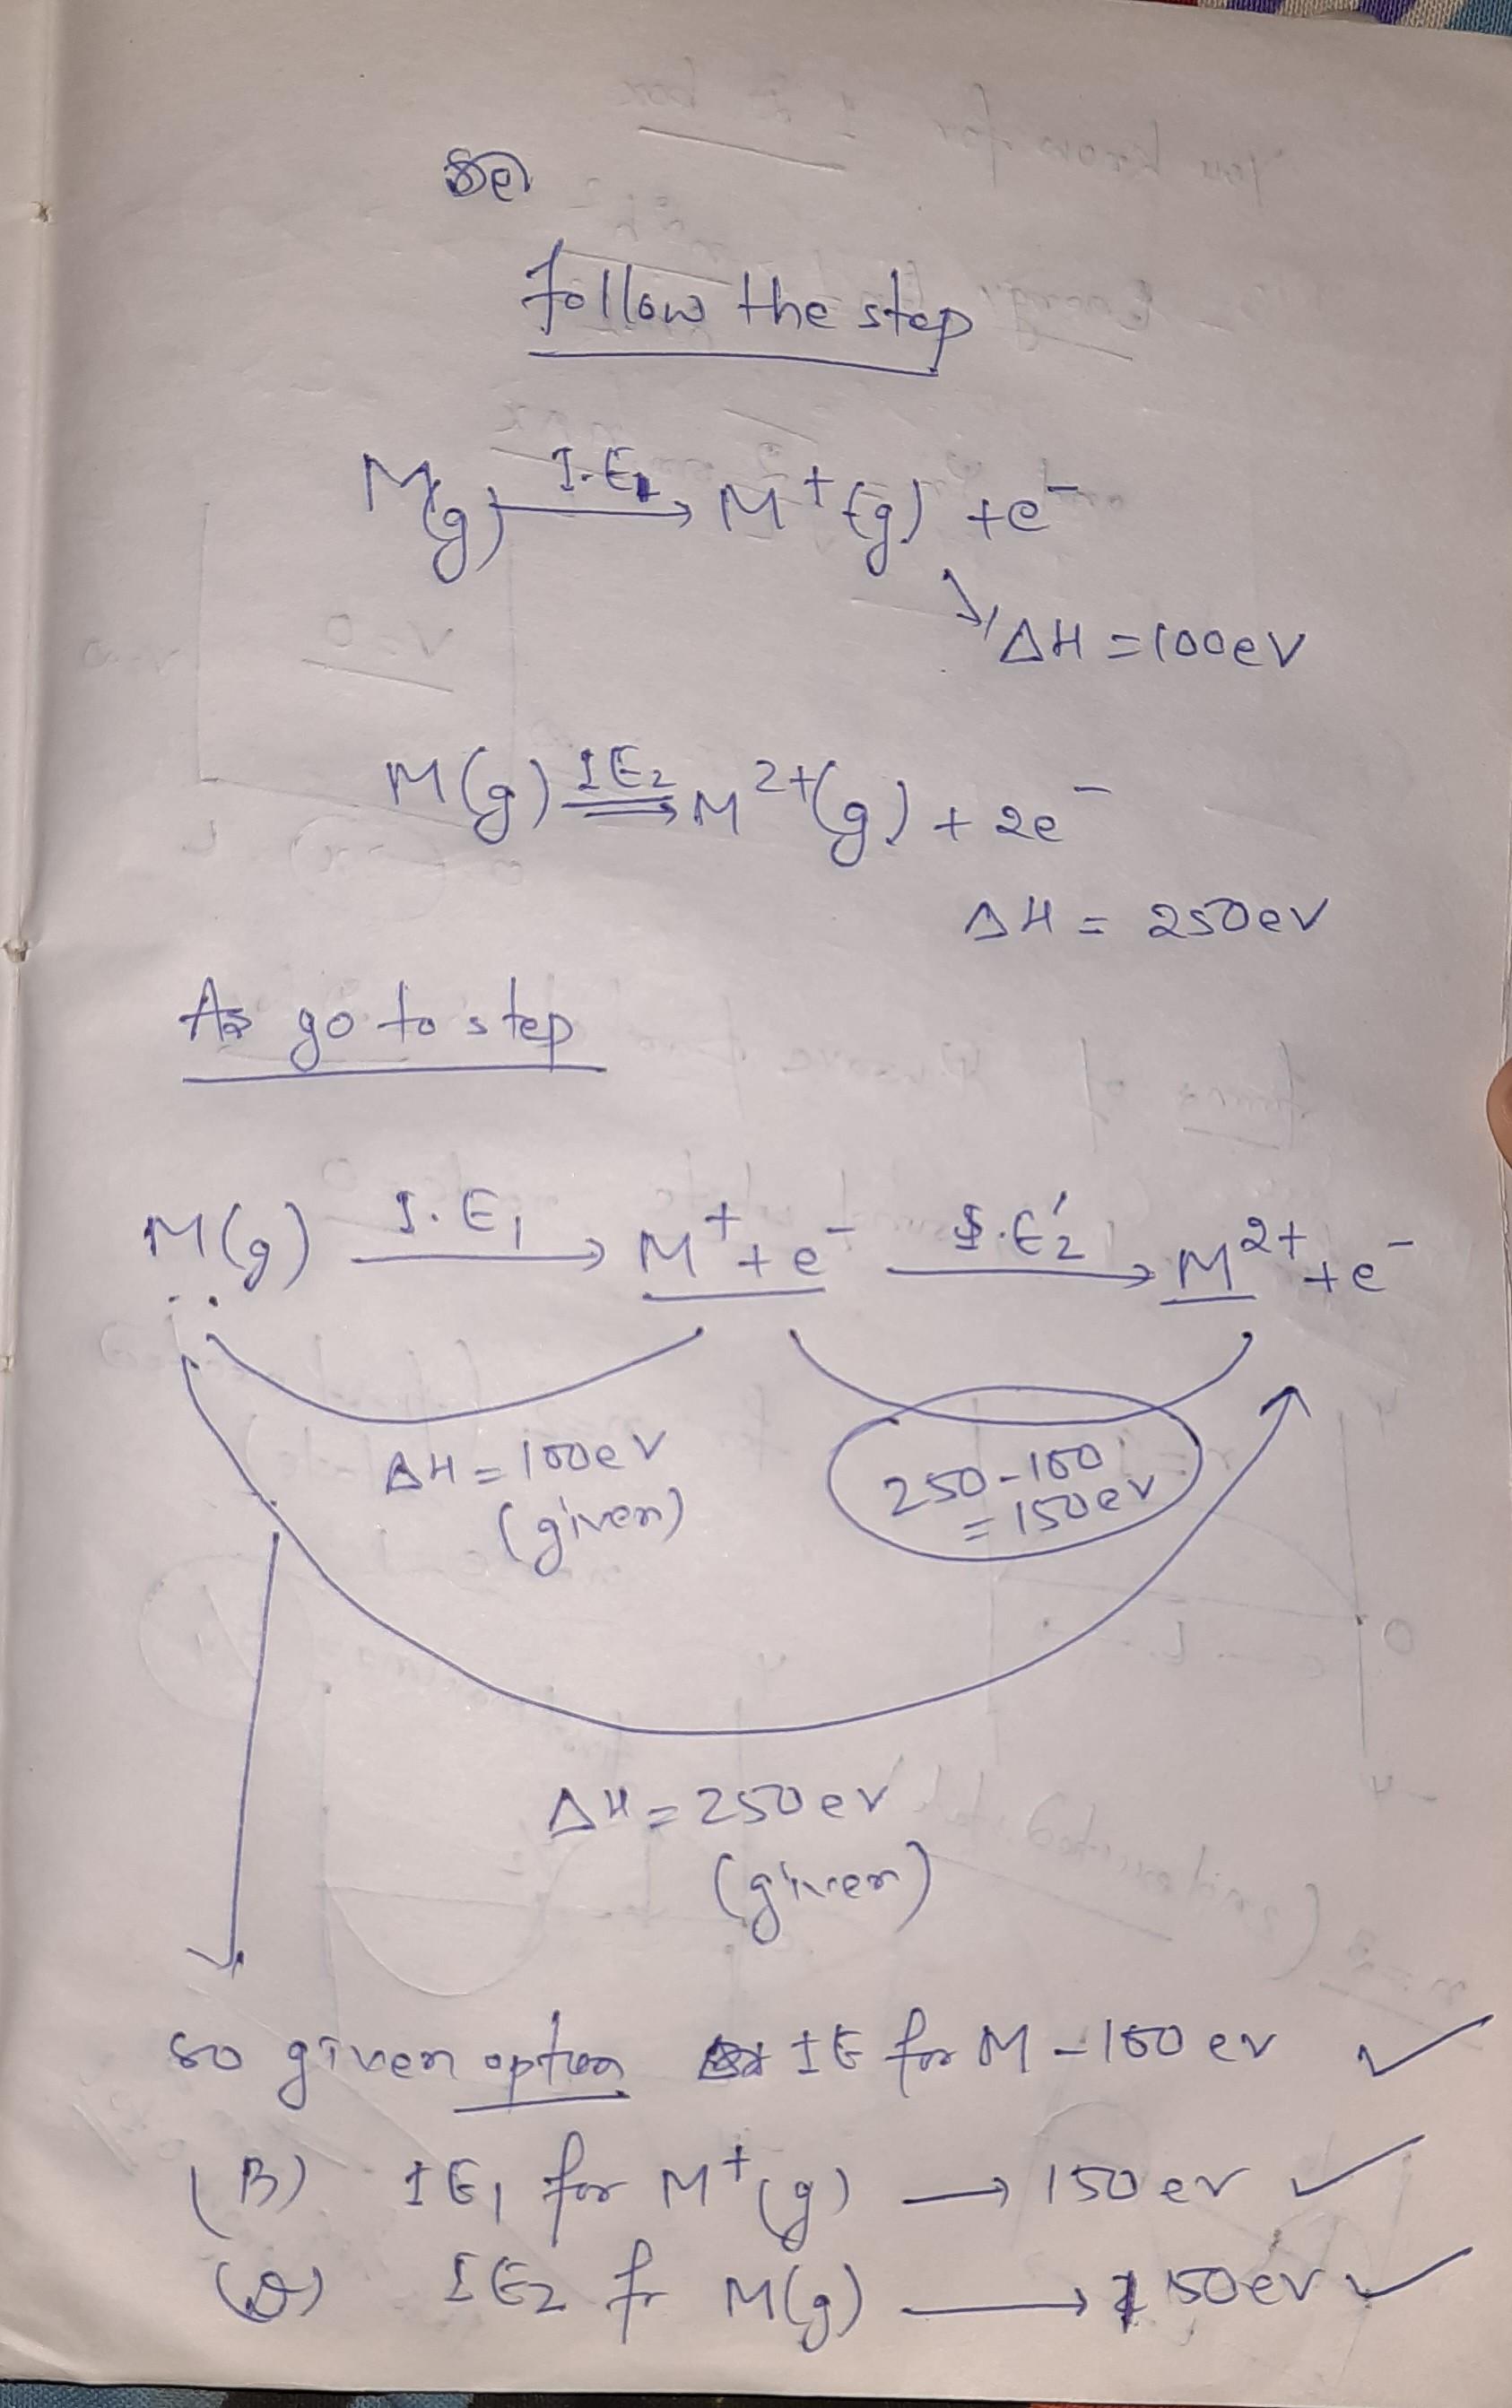 follow the step
M(g) I.E₁ → M⁺(g) + e⁻
ΔH = 100ev
M(g) IE₂ → M²⁺(g) + 2e⁻
ΔH = 250ev
As go to step
M(g) I.E₁ → M⁺ + e⁻ I.E₂' → M²⁺ + e⁻
ΔH = 100ev
(given)
250-100
= 150ev
ΔH = 250ev
(given)
so given option IE for M - 100 ev ✓
(B) IE₁ for M⁺(g) → 150 ev ✓
IE₂ fr M(g) → 150ev ✓